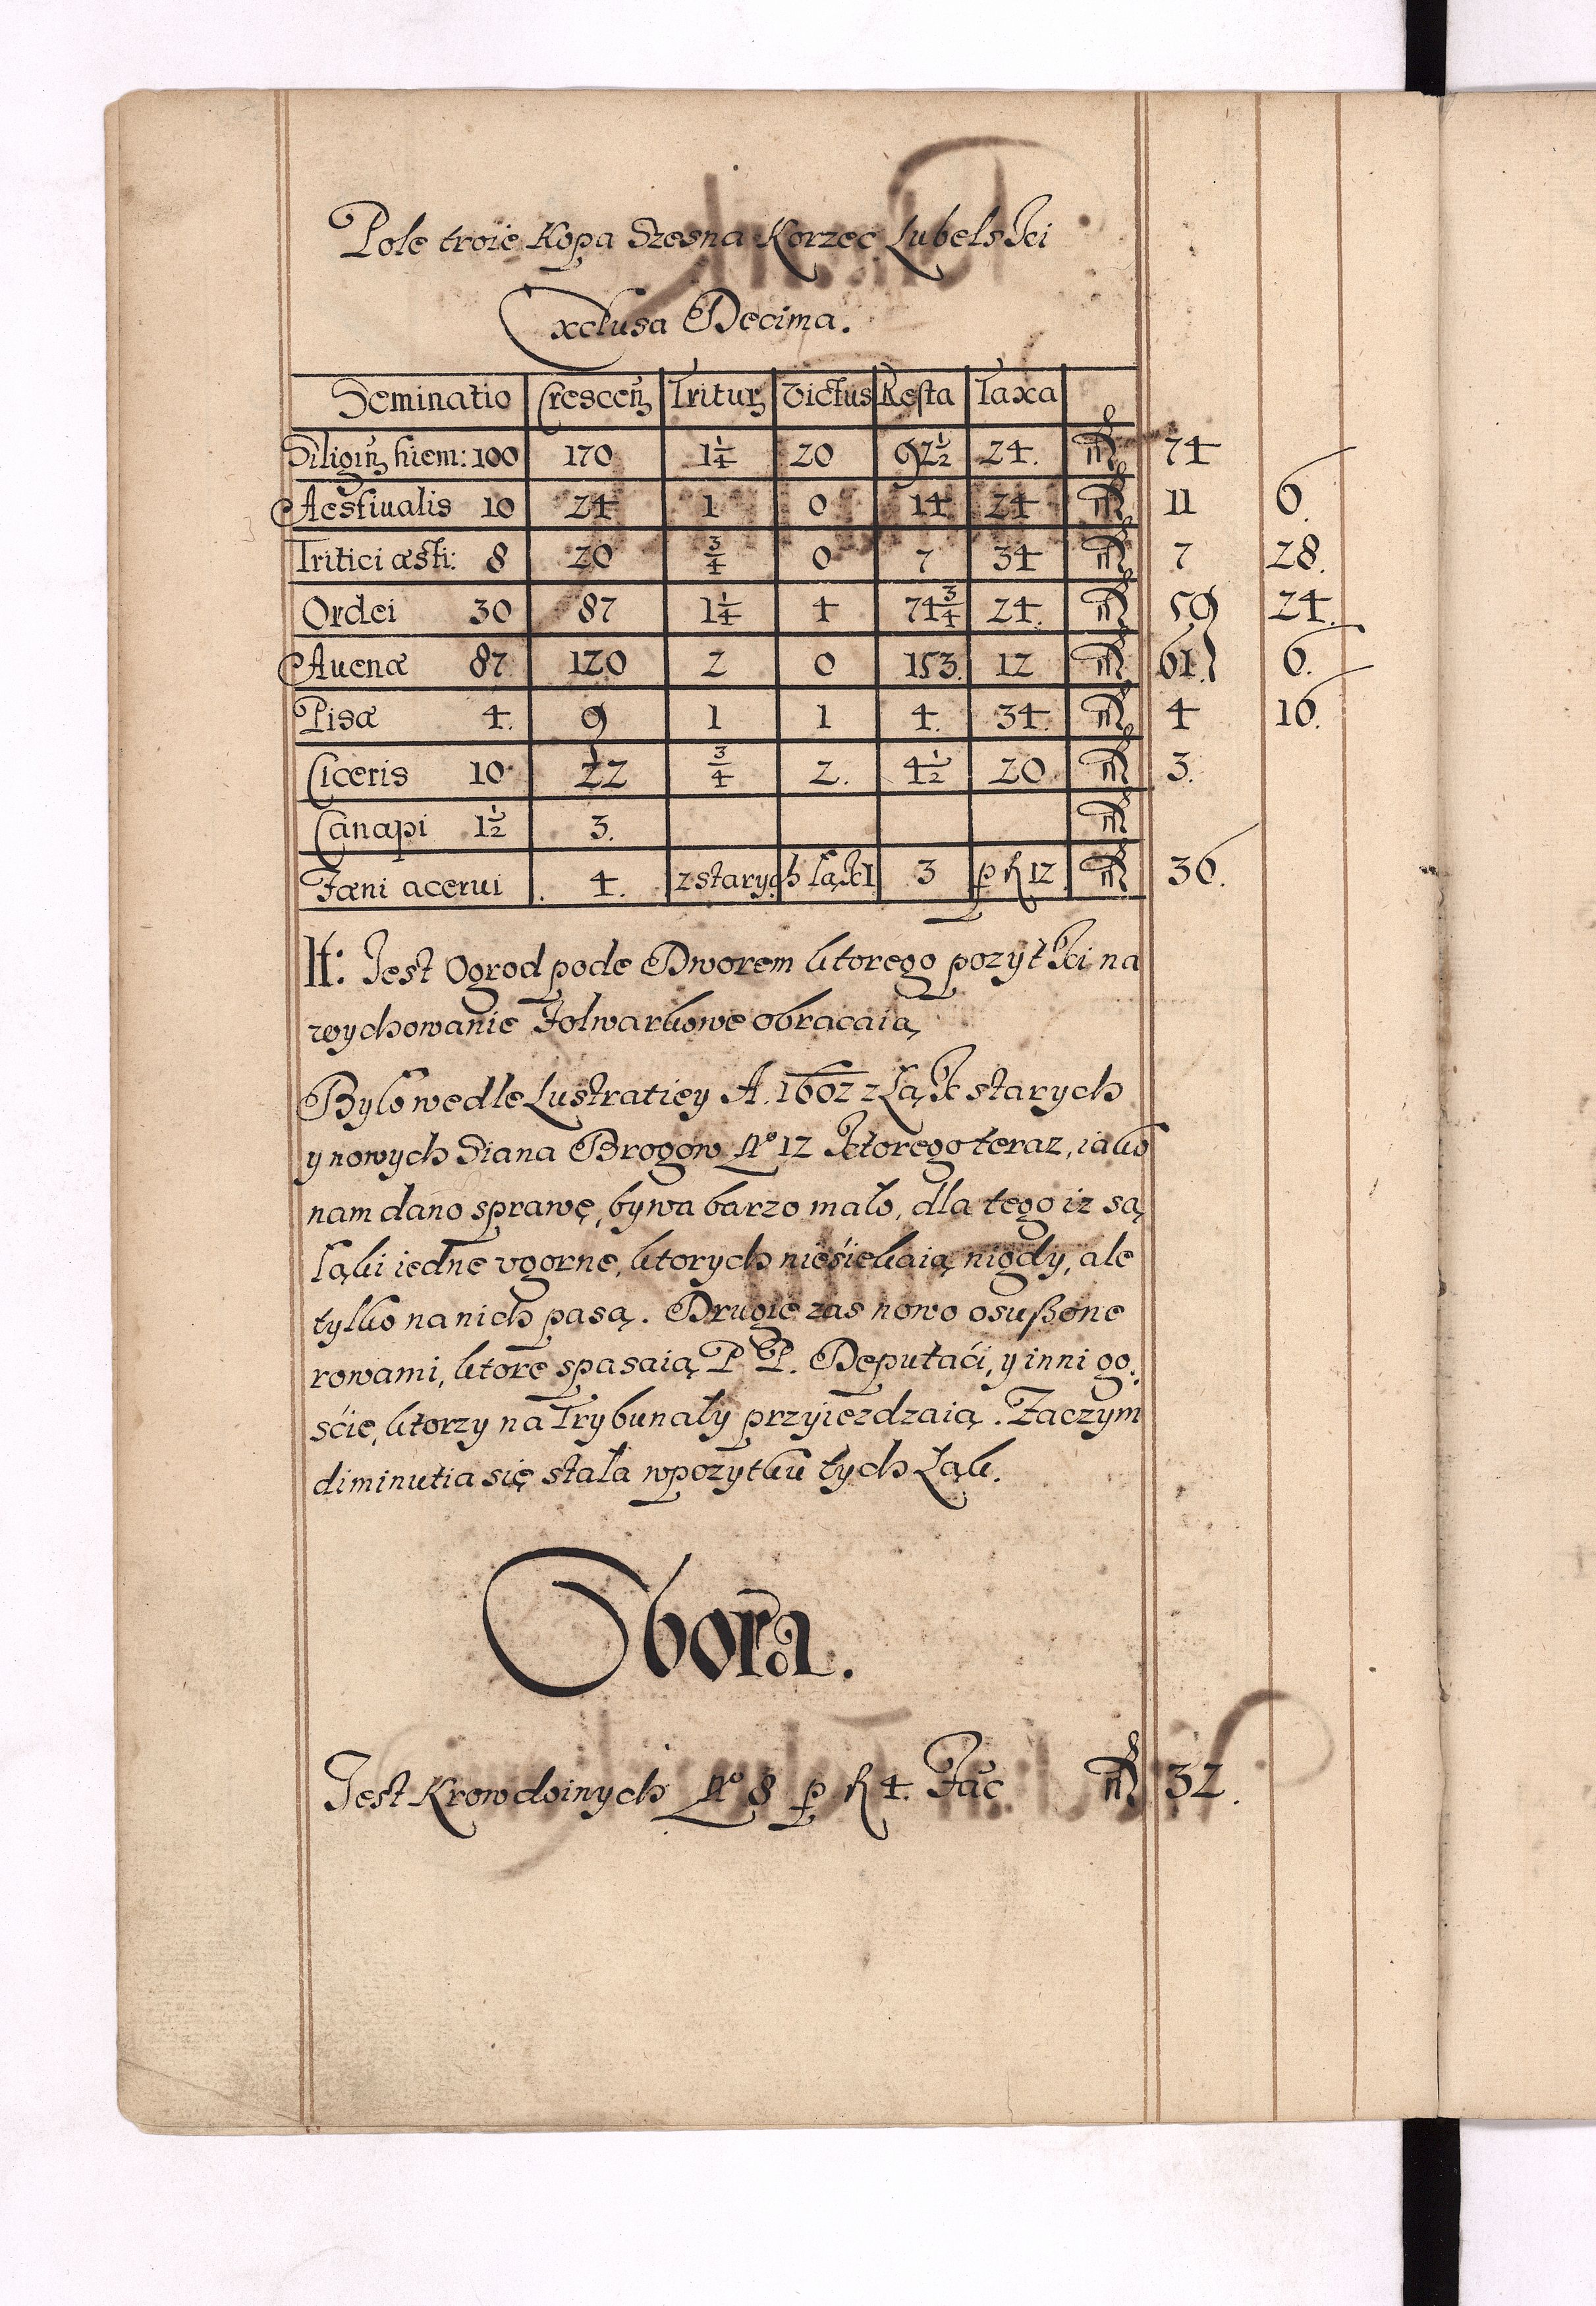 Pole troie Kopa Szesna Korzec Lubelski
Exclusa Decima.
Seminatio Crescen̄ Tritur Victus Resta Taxa
Siligin̄ hiem: 100 170 1¼ 20 92½ 24. 74
Aestiualis 10 24 1 0 14 24 11 6.
Tritici æsti: 8 20 ¾ 0 7 34 7 28.
Ordei 30 87 1¼ 4 74¾ 24. 59 24.
Auenæ 87 120 2 0 153. 12 61. 6.
Pisæ 4. 9 1 1 4. 34. 4 16.
Ciceris 10 22 ¾ 2. 4½ 20 3.
Canapi 1½ 3.
Fæni acerui 4. z starych łąk 3 p fl 12 36.
It: Jest Ogrod pode Dworem ktorego pozytki na
wychowanie folwarkowe obracaią
Bylo wedle Lustratiey A. 1602 z Łąk starych
y nowych Siana Brogow No 12 ktorego teraz, iako
nam dano sprawę, bywa barzo mało, dla tego iz są
łąki iedne vgorne, ktorych nieśiekaią nigdy, ale
tylko na nich pasą. Drugie zas nowo osuszone
rowami, ktore spasaią P P. Deputaći, y inni go:
ście, ktorzy na Trybunały przyiezdzaią. Zaczym
diminutia się stała w pozytku tych Łąk.
Obora.
Jest Krow doinych No 8 p fl 4. Fac 32.